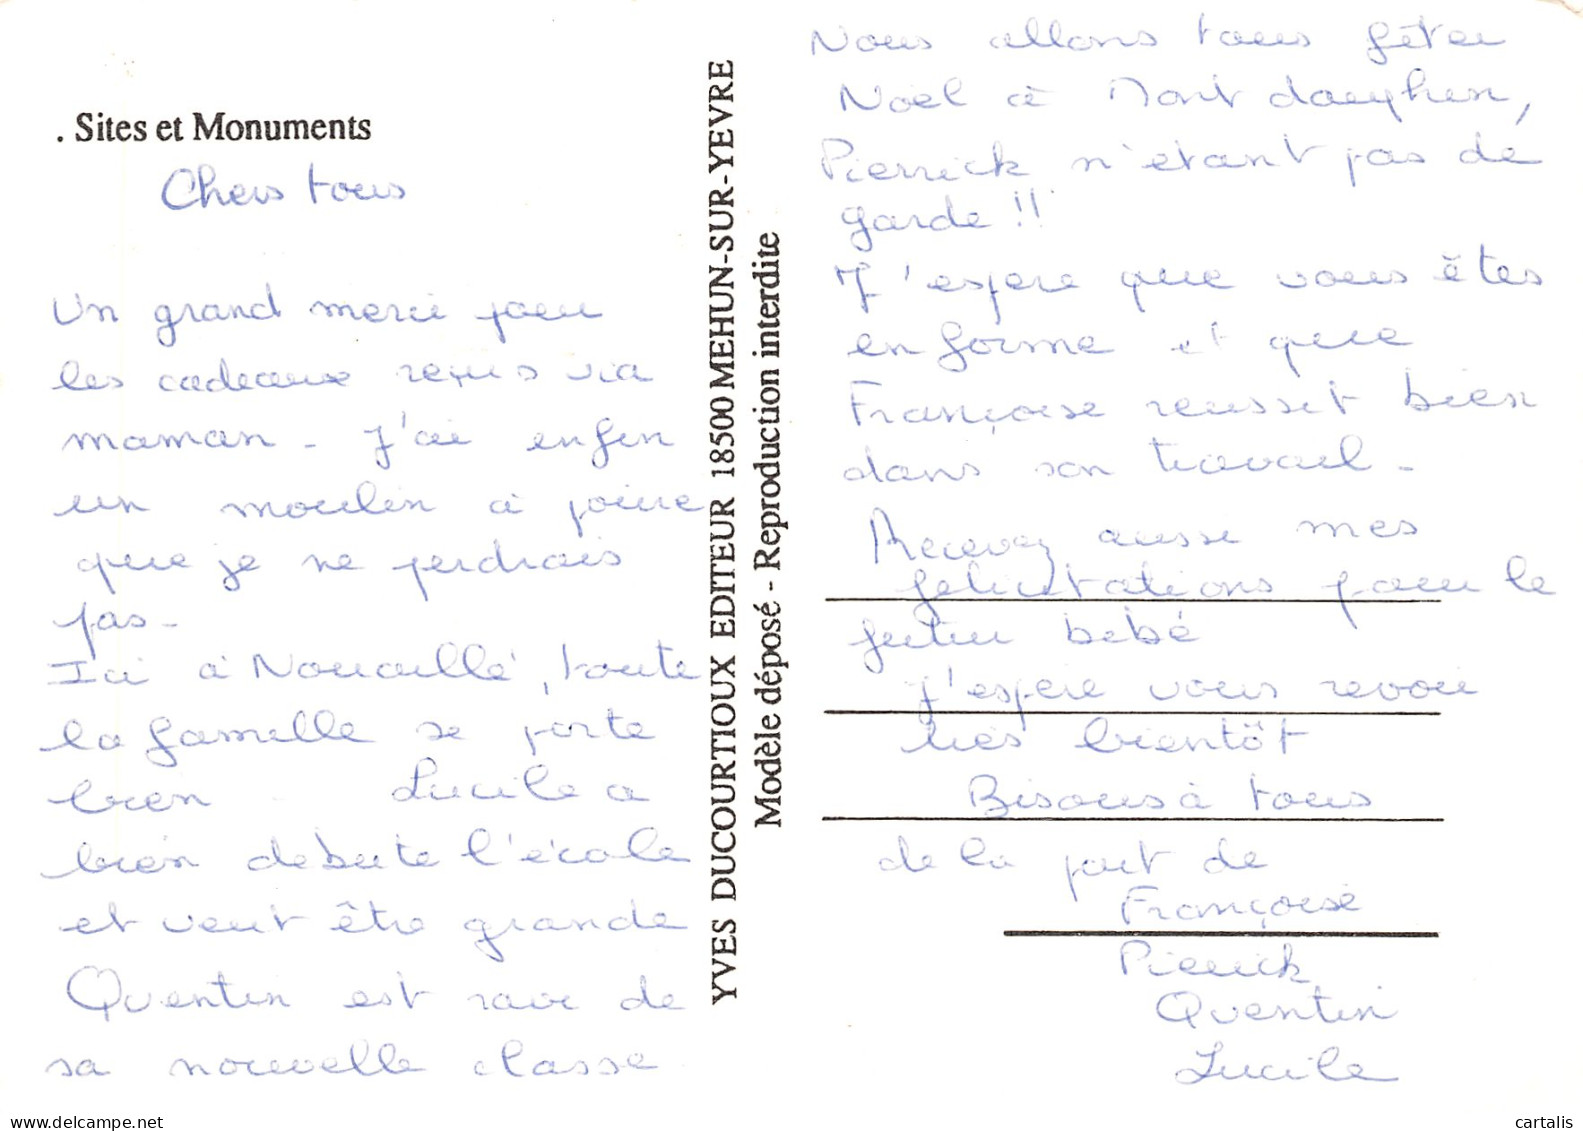 . Sites et Monuments
Chers tous
Un grand merci pour
les cadeaux reçus via
maman - J'ai enfin
un moulin à poivre
que je ne perdrais
pas -
Ici à Nouaillé, toute
la famille se porte
bien Lucile a
bien debuté l'école
et veut être grande
Quentin est ravi de
sa nouvelle classe
YVES DUCOURTIOUX EDITEUR 18500 MEHUN-SUR-YEVRE
Modèle déposé - Reproduction interdite
Nous allons tous fêter
Noël à Mont dauphin,
Pierrick n'étant pas de
garde !!
J'espere que vous êtes
en forme et que
Françoise reussit bien
dans son travail -
Recevez aussi mes
felicitations pour le
futur bébé
J'espere vous revoir
tres bientôt
Bisous à tous
de la part de
Françoise
Pierrick
Quentin
Lucile
www.delcampe.net
cartalis